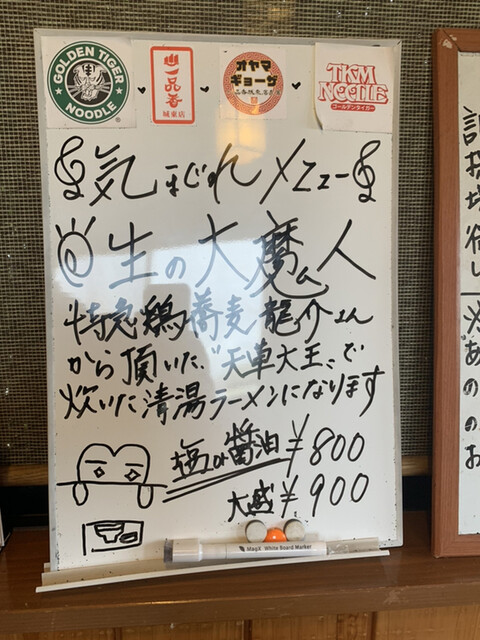 GOLDEN TIGER
NOODLE
一品香
城東店
オヤマ
ギョーザ
TKM
NOTIE
ゴールデンタイガー
気まぐれメニュー
生の大魔人
特急鶏蕎麦龍介さん
から頂いた"天車大王"で
炊いた清湯ラーメンになります
塩or醤油 ¥800
大盛 ¥900
MagX White Board Marker